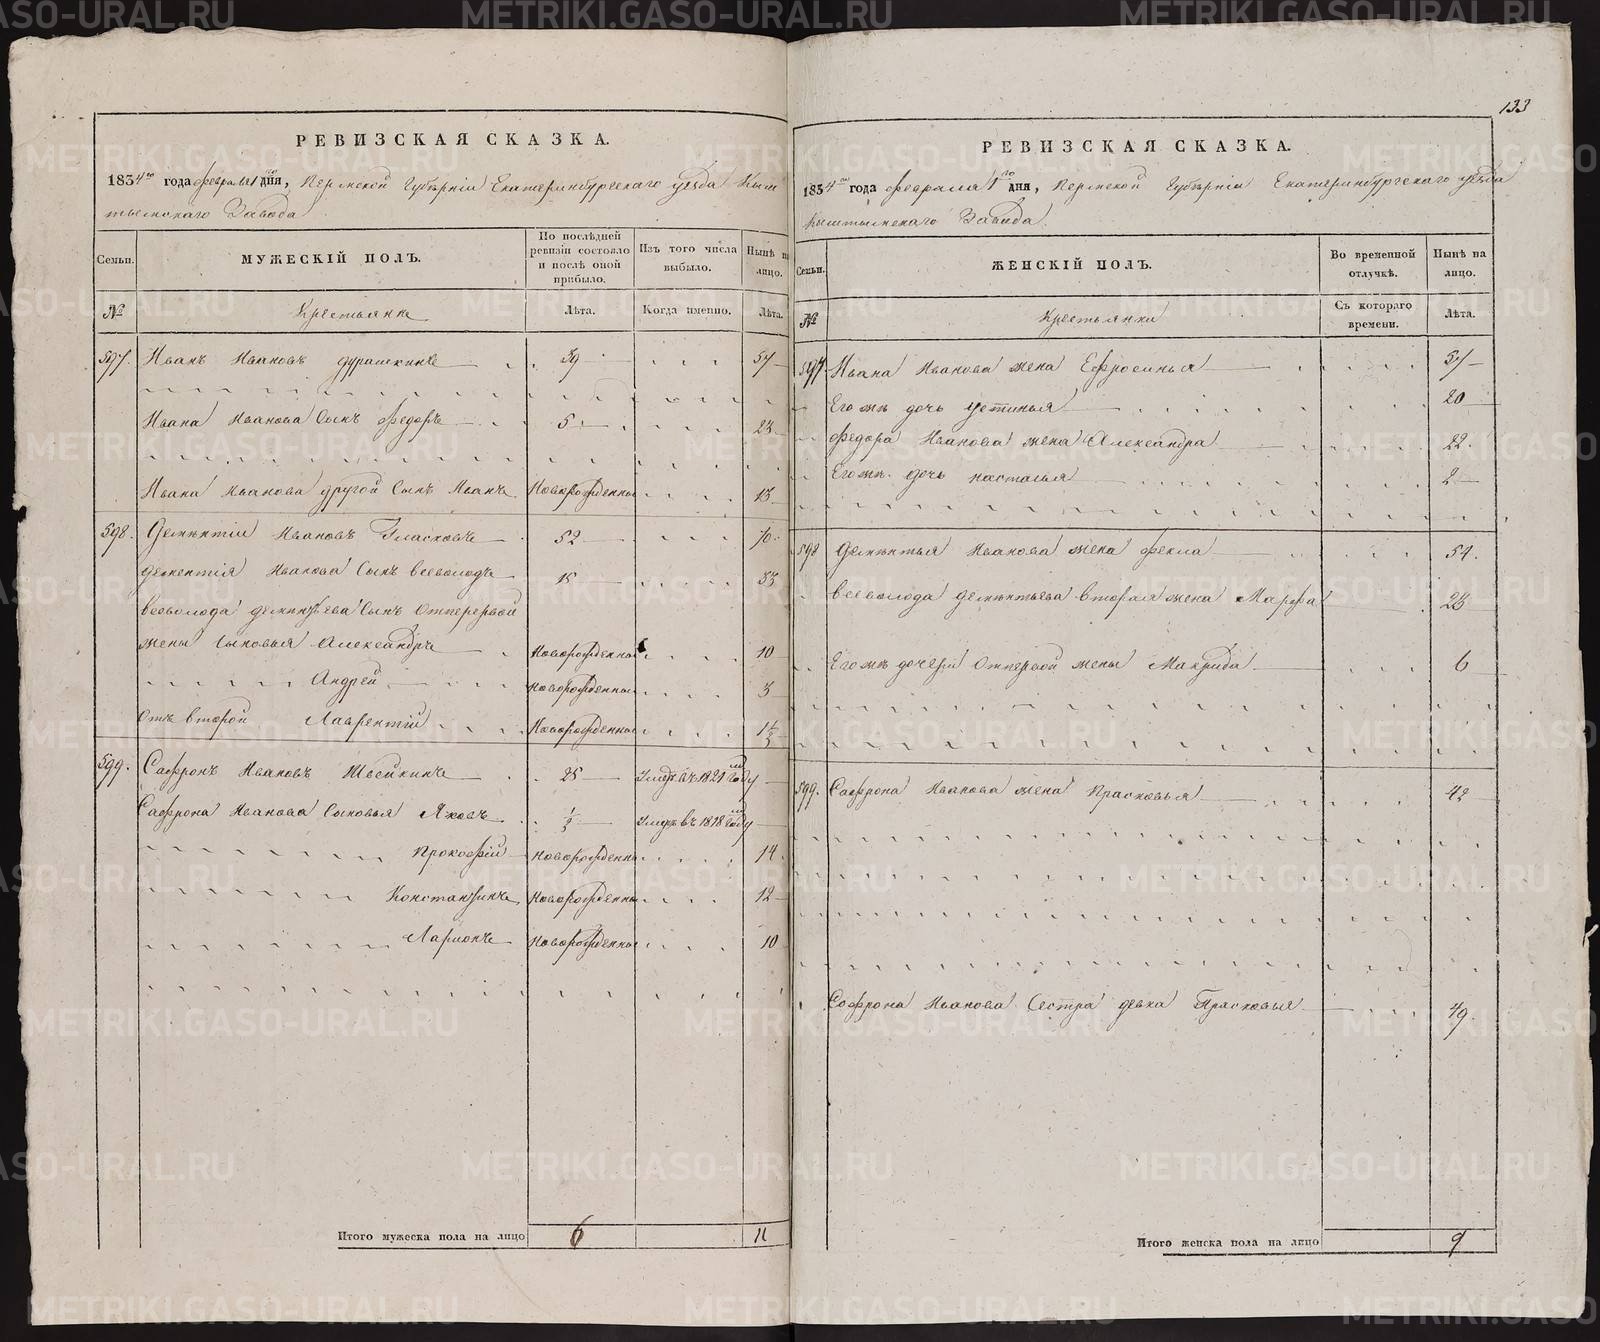 133
РЕВИЗСКАЯ СКАЗКА.
1834го года февраля 1го дня, Пермской Губернiи Екатеринбургского уезда Кыш
тымского Завода
Семьи.
МУЖЕСКIЙ ПОЛЪ.
По последней ревизiи состояло и после оной прибыло.
Изъ того числа выбыло.
Ныне на лицо.
№
Крестьяне
Лета.
Когда именно.
Лета.
597. Иванъ Ивановъ дурашкинъ 39 57
Ивана Иванова Сынъ Федоръ 5 23
Ивана Иванова другой Сынъ Иванъ Новорожденны 13
598. Дементiй Ивановъ 52 70
дементiя Иванова Сынъ Всеволодъ 15 33
Всеволода дементьева Сынъ Отпервой
жены Сыновья Александръ Новорожденны 10
Андрей Новорожденны 3
Отъ второй Лаврентiй Новорожденны 1 1/2
599. Сафронъ Ивановъ Швейкинъ 25 Умеръ въ 1821 году
Сафрона Иванова Сыновья Яковъ 1/2 Умеръ въ 1818 году
Прокофiй Новорожденны 14
Константинъ Новорожденны 12
Ларионъ Новорожденны 10
Итого мужеска пола на лицо 6 11
РЕВИЗСКАЯ СКАЗКА.
1834го года февраля 1го дня, Пермской Губернiи Екатеринбургского уезда
Кыштымскаго Завода
Семьи.
ЖЕНСКIЙ ПОЛЪ.
Во временной отлучкѣ.
Нынѣ на лицо.
№
Крестьянки
Съ котораго времени.
Лѣта.
597 Ивана Иванова жена Ефросинья 57
Егожъ дочь Устинья 20
федора Иванова жена Александра 22
Егожъ дочь насталья 2
598 Дементья Иванова жена фекла 54
Всеволода дементьева вторая жена Марфа 23
Егожъ дочери Отпервой жены Макрида 6
599. Сафрона Иванова жена Прасковья 42
Софрона Иванова Сестра девка Прасковья 49
Итого женска пола на лицо 9
METRIKI.GASO-URAL.RU